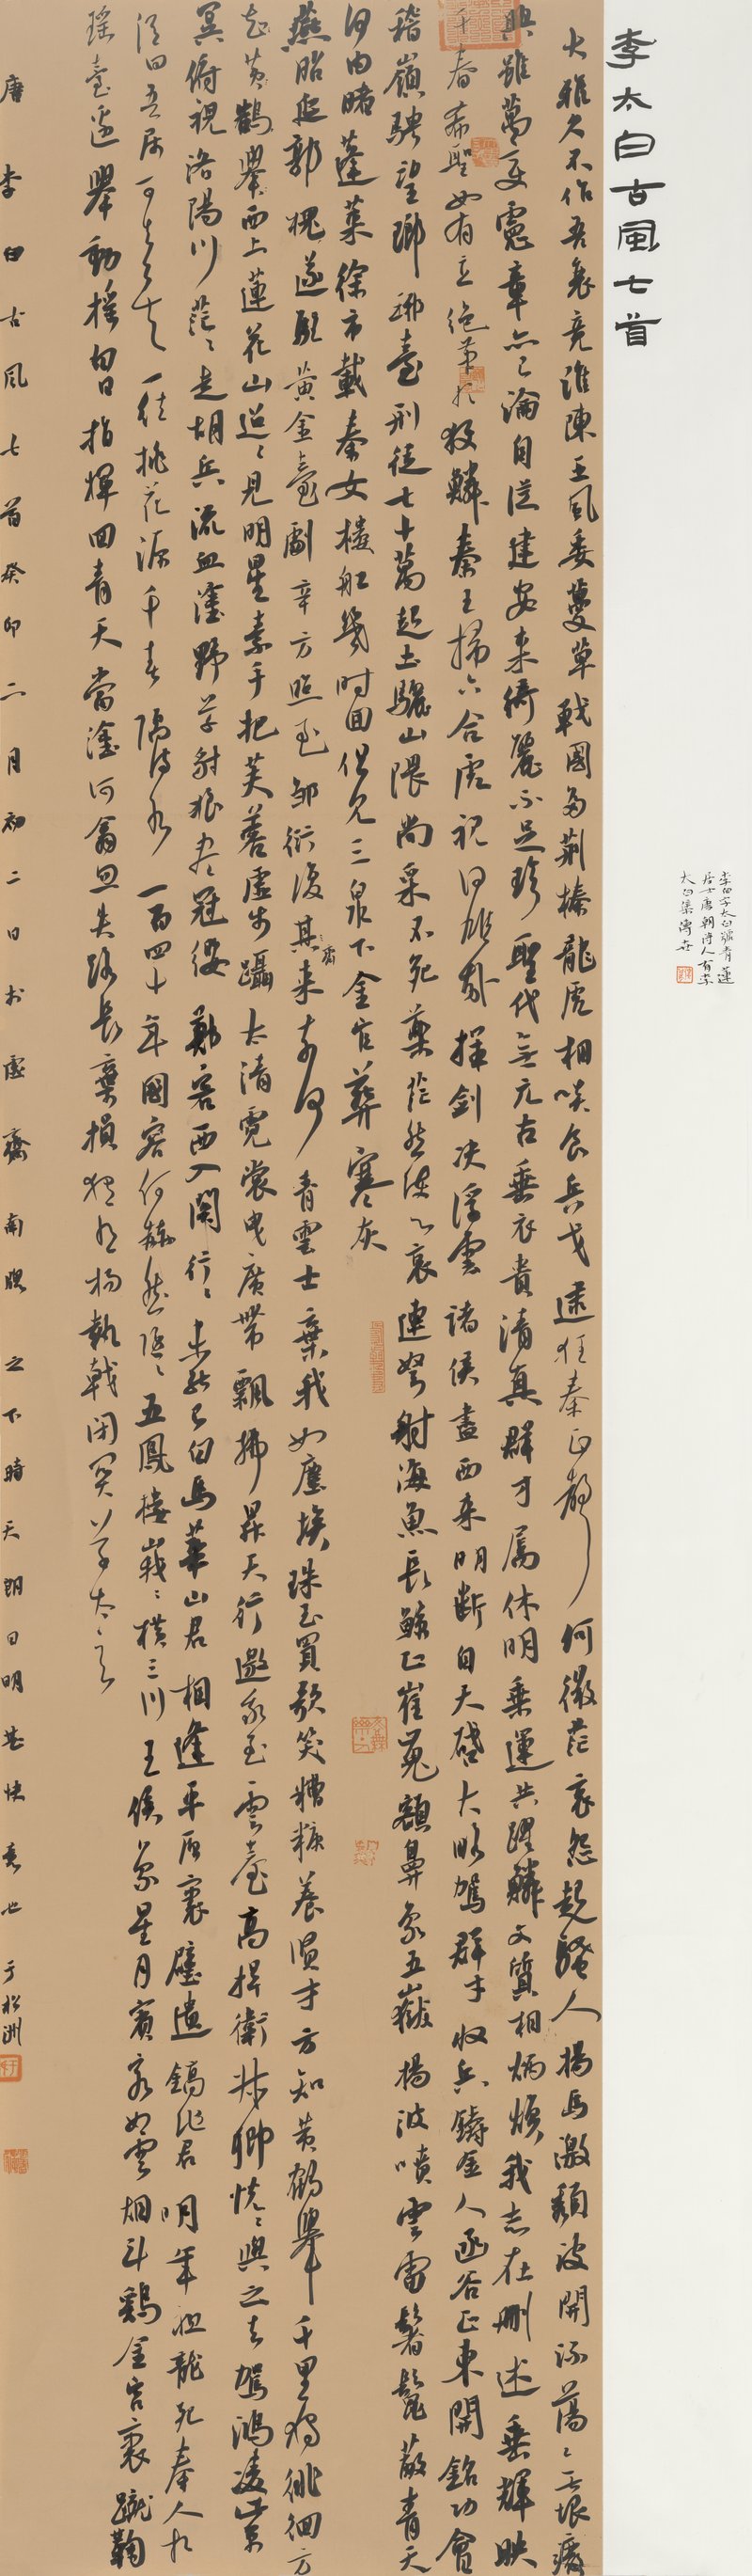 李太白古風七首
李白字太白號青蓮
居士唐朝詩人有李
太白集傳世
大雅久不作吾衰竟誰陳王風委蔓草戰國多荊榛龍虎相啖食兵戈逮狂秦正聲何微茫哀怨起騷人揚馬激頹波開流蕩㆑無垠廢
興雖萬變憲章亦已淪自從建安來綺麗不足珍聖代復元古垂衣貴清真群才屬休明乘運共躍鱗文質相炳煥我志在刪述垂輝映
千春希聖如有立絕筆於獲鱗秦王掃六合虎視何雄哉揮劍決浮雲諸侯盡西來明斷自天啓大略駕群才收兵鑄金人函谷正東開銘功會
稽嶺騁望瑯琊臺刑徒七十萬起土驪山隈尚采不死藥茫然使心哀連弩射海魚長鯨正崔嵬額鼻象五嶽揚波噴雲雷鬐鬣蔽青天
何由睹蓬萊徐市載秦女樓船幾時回但見三泉下金棺葬寒灰
燕昭延郭隗遂築黃金臺劇辛方趙至鄒衍復其齊來奈何青雲士棄我如塵埃珠玉買歌笑糟糠養賢才方知黃鶴舉千里獨徘徊方
知黃鶴舉西上蓮花山迢々見明星素手把芙蓉虛步躡太清霓裳曳廣帶飄拂昇天行邀我至雲臺高揖衛叔卿恍々與之去駕鴻凌紫
冥俯視洛陽川茫々走胡兵流血塗野草豺狼盡冠纓鄭客西入關行々未能已白馬華山君相逢平原裏璧遺鎬池君明年祖龍死秦人相
謂曰吾屬可去矣一往桃花源千春隔流水一百四十年國容何赫然隱々五鳳樓峩々橫三川王侯象星月賓客如雲烟斗鷄金宮裏蹴鞠
瑤臺邊舉動搖白日指揮回青天當塗何翕忽失路長棄捐獨有揚執戟閉關草太玄
唐李白古風七首癸卯二月初二日於虛齋南牕之下時天朗日明甚快意也于松洲